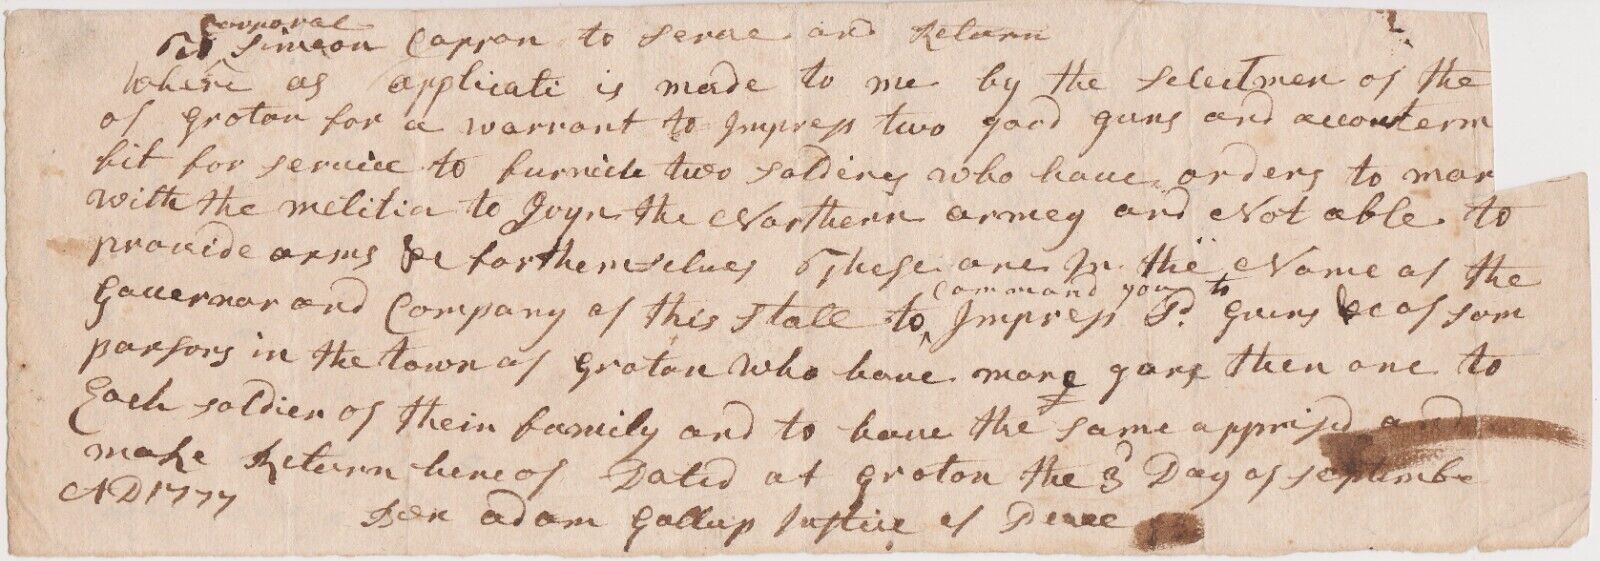 Corporal
To Simeon Capron to serve and Return
Where as applicati is made to me by the selectmen of the
of groton for a warrant to Impress two good guns and accouterm
fit for service to furnish two soldiers who have orders to mar
with the melitia to Joyn the Northern armey and Not able to
provide arms &c for themselves These are In the Name of the
command you to
Governor and Company of this State to ^ Impress Sd. guns &c of som
parsons in the town of groton who have more guns then one to
Each soldier of their family and to have the same apprisd and
make Return hereof Dated at groton the 3d Day of septembe
AD 1777
Per adam Gallup Justice of Peace